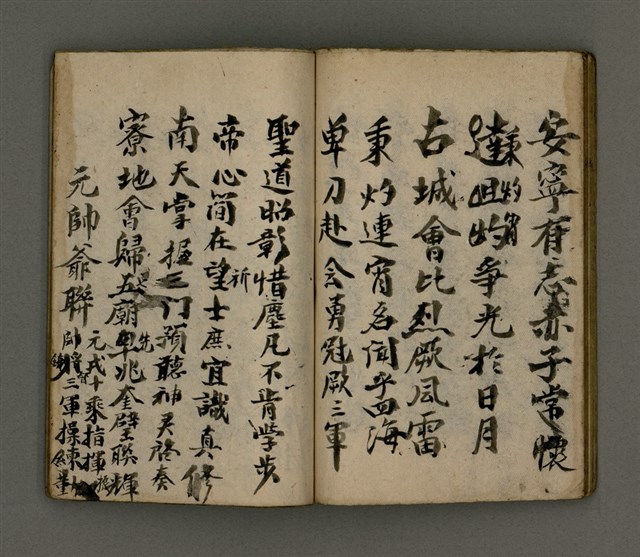 安寧有志赤子常懷
達旦灼爭光於日月
秉灼宵
古城會比烈厥風雷
秉灼連宵名聞乎四海
单刀赴会勇冠厥三軍
聖道昭彰惜塵凡不肯學步
帝心簡在望士庶宜識真修
祈
南天掌握三門預聽神灵啓奏
寮地會歸五廟 兆奎璧聯輝
先
元帥爺聯
元戎十乘指揮
帥將三軍操練